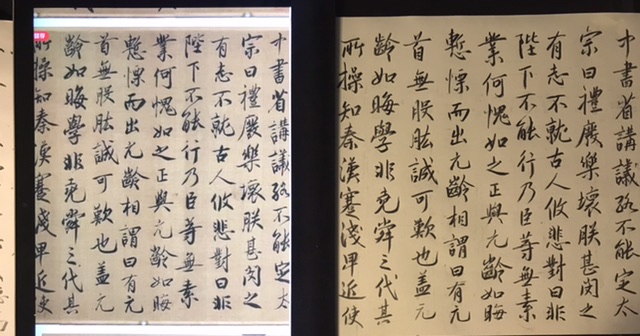 中書省講議終不能定太
宗曰禮廢樂壞朕甚閔之
有志不就古人攸悲對曰非
陛下不能行乃臣等無素
業何愧如之正與元齡如晦
慙慄而出元齡相謂曰有元
首無股肱誠可歎也蓋元
齡如晦學非堯舜三代其
所操知秦漢蹇淺卑近使
中書省講議終不能定太
宗曰禮廢樂壞朕甚閔之
有志不就古人攸悲對曰非
陛下不能行乃臣等無素
業何愧如之正與元齡如晦
慙慄而出元齡相謂曰有元
首無股肱誠可歎也蓋元
齡如晦學非堯舜三代其
所操知秦漢蹇淺卑近使